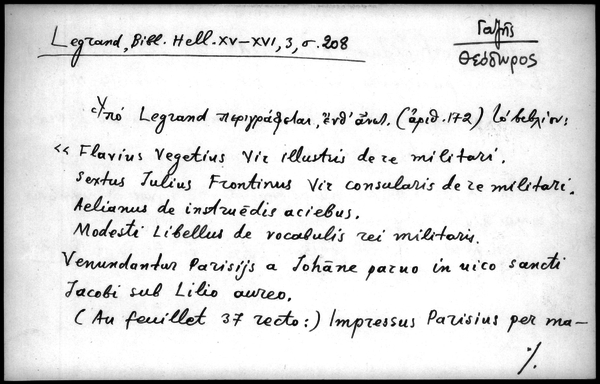 Legrand, Bibl. Hell. XV-XVI, 3, σ. 208
Γαζῆς
Θεόδωρος
Ὑπό Legrand περιγράφεται, ἔνθ' ἀνωτ. (ἀριθ. 172) τό βιβλίον:
«Flavius Vegetius Vir illustris de re militari.
Sextus Julius Frontinus Vir consularis de re militari.
Aelianus de instruēdis aciebus.
Modesti Libellus de vocabulis rei militaris.
Venundantur Parisijs a Johāne paruo in uico sancti
Jacobi sub Lilio aureo.
(Au feuillet 37 recto:) Impressus Parisius per ma-
./.